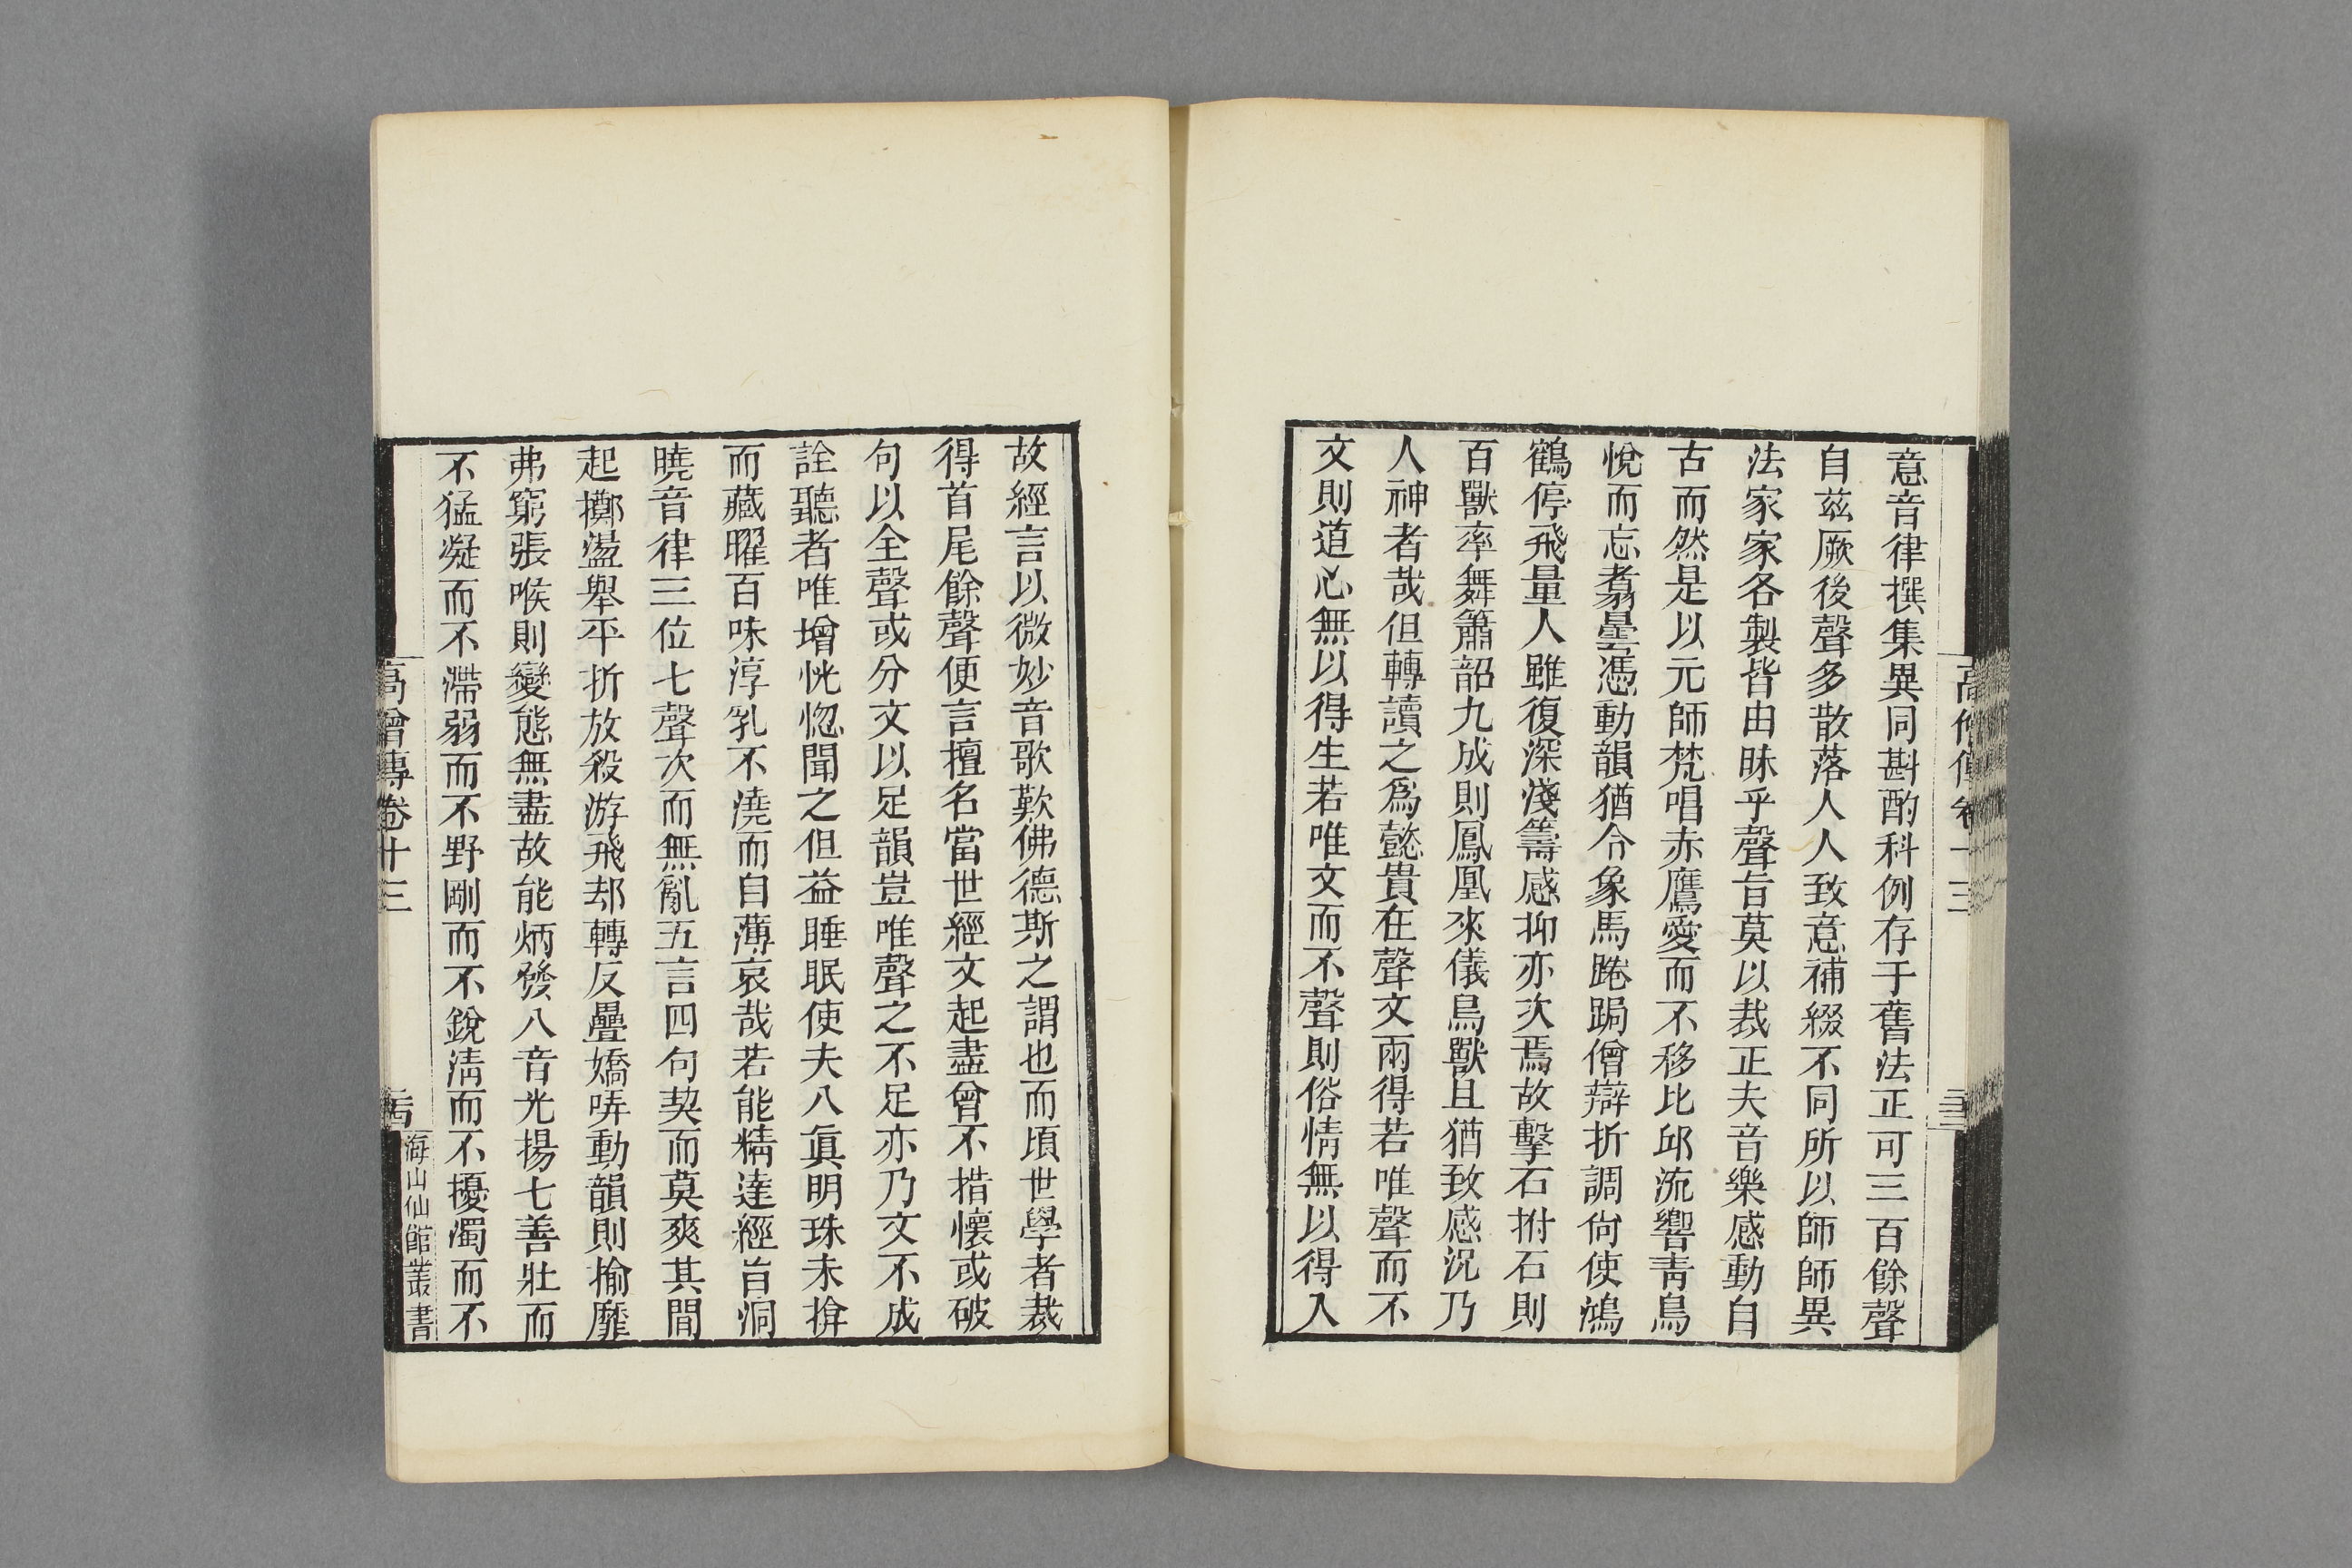 意音律撰集異同斟酌科例存于舊法正可三百餘聲
自茲厥後聲多散落人人致意補綴不同所以師師異
法家家各製皆由昧乎聲旨莫以裁正夫音樂感動自
古而然是以元師梵唱赤鷹愛而不移比邱流響青鳥
悅而忘翥曇憑動韻猶令象馬踡跼僧辯折調尙使鴻
鶴停飛量人雖復深淺籌感抑亦次焉故擊石拊石則
百獸率舞簫韶九成則鳳凰來儀鳥獸且猶致感況乃
人神者哉但轉讀之爲懿貴在聲文兩得若唯聲而不
文則道心無以得生若唯文而不聲則俗情無以得入
故經言以微妙音歌歎佛德斯之謂也而頃世學者裁
得首尾餘聲便言擅名當世經文起盡曾不措懷或破
句以全聲或分文以足韻豈唯聲之不足亦乃文不成
詮聽者唯增恍惚聞之但益睡眠使夫八眞明珠未揜
而藏曜百味淳乳不澆而自薄哀哉若能精達經旨洞
曉音律三位七聲次而無亂五言四句契而莫爽其間
起擲盪舉平折放殺游飛却轉反疊嬌哢動韻則揄靡
弗窮張喉則變態無盡故能炳發八音光揚七善壯而
不猛凝而不滯弱而不野剛而不銳淸而不擾濁而不
高僧傳卷十三
海山仙館叢書